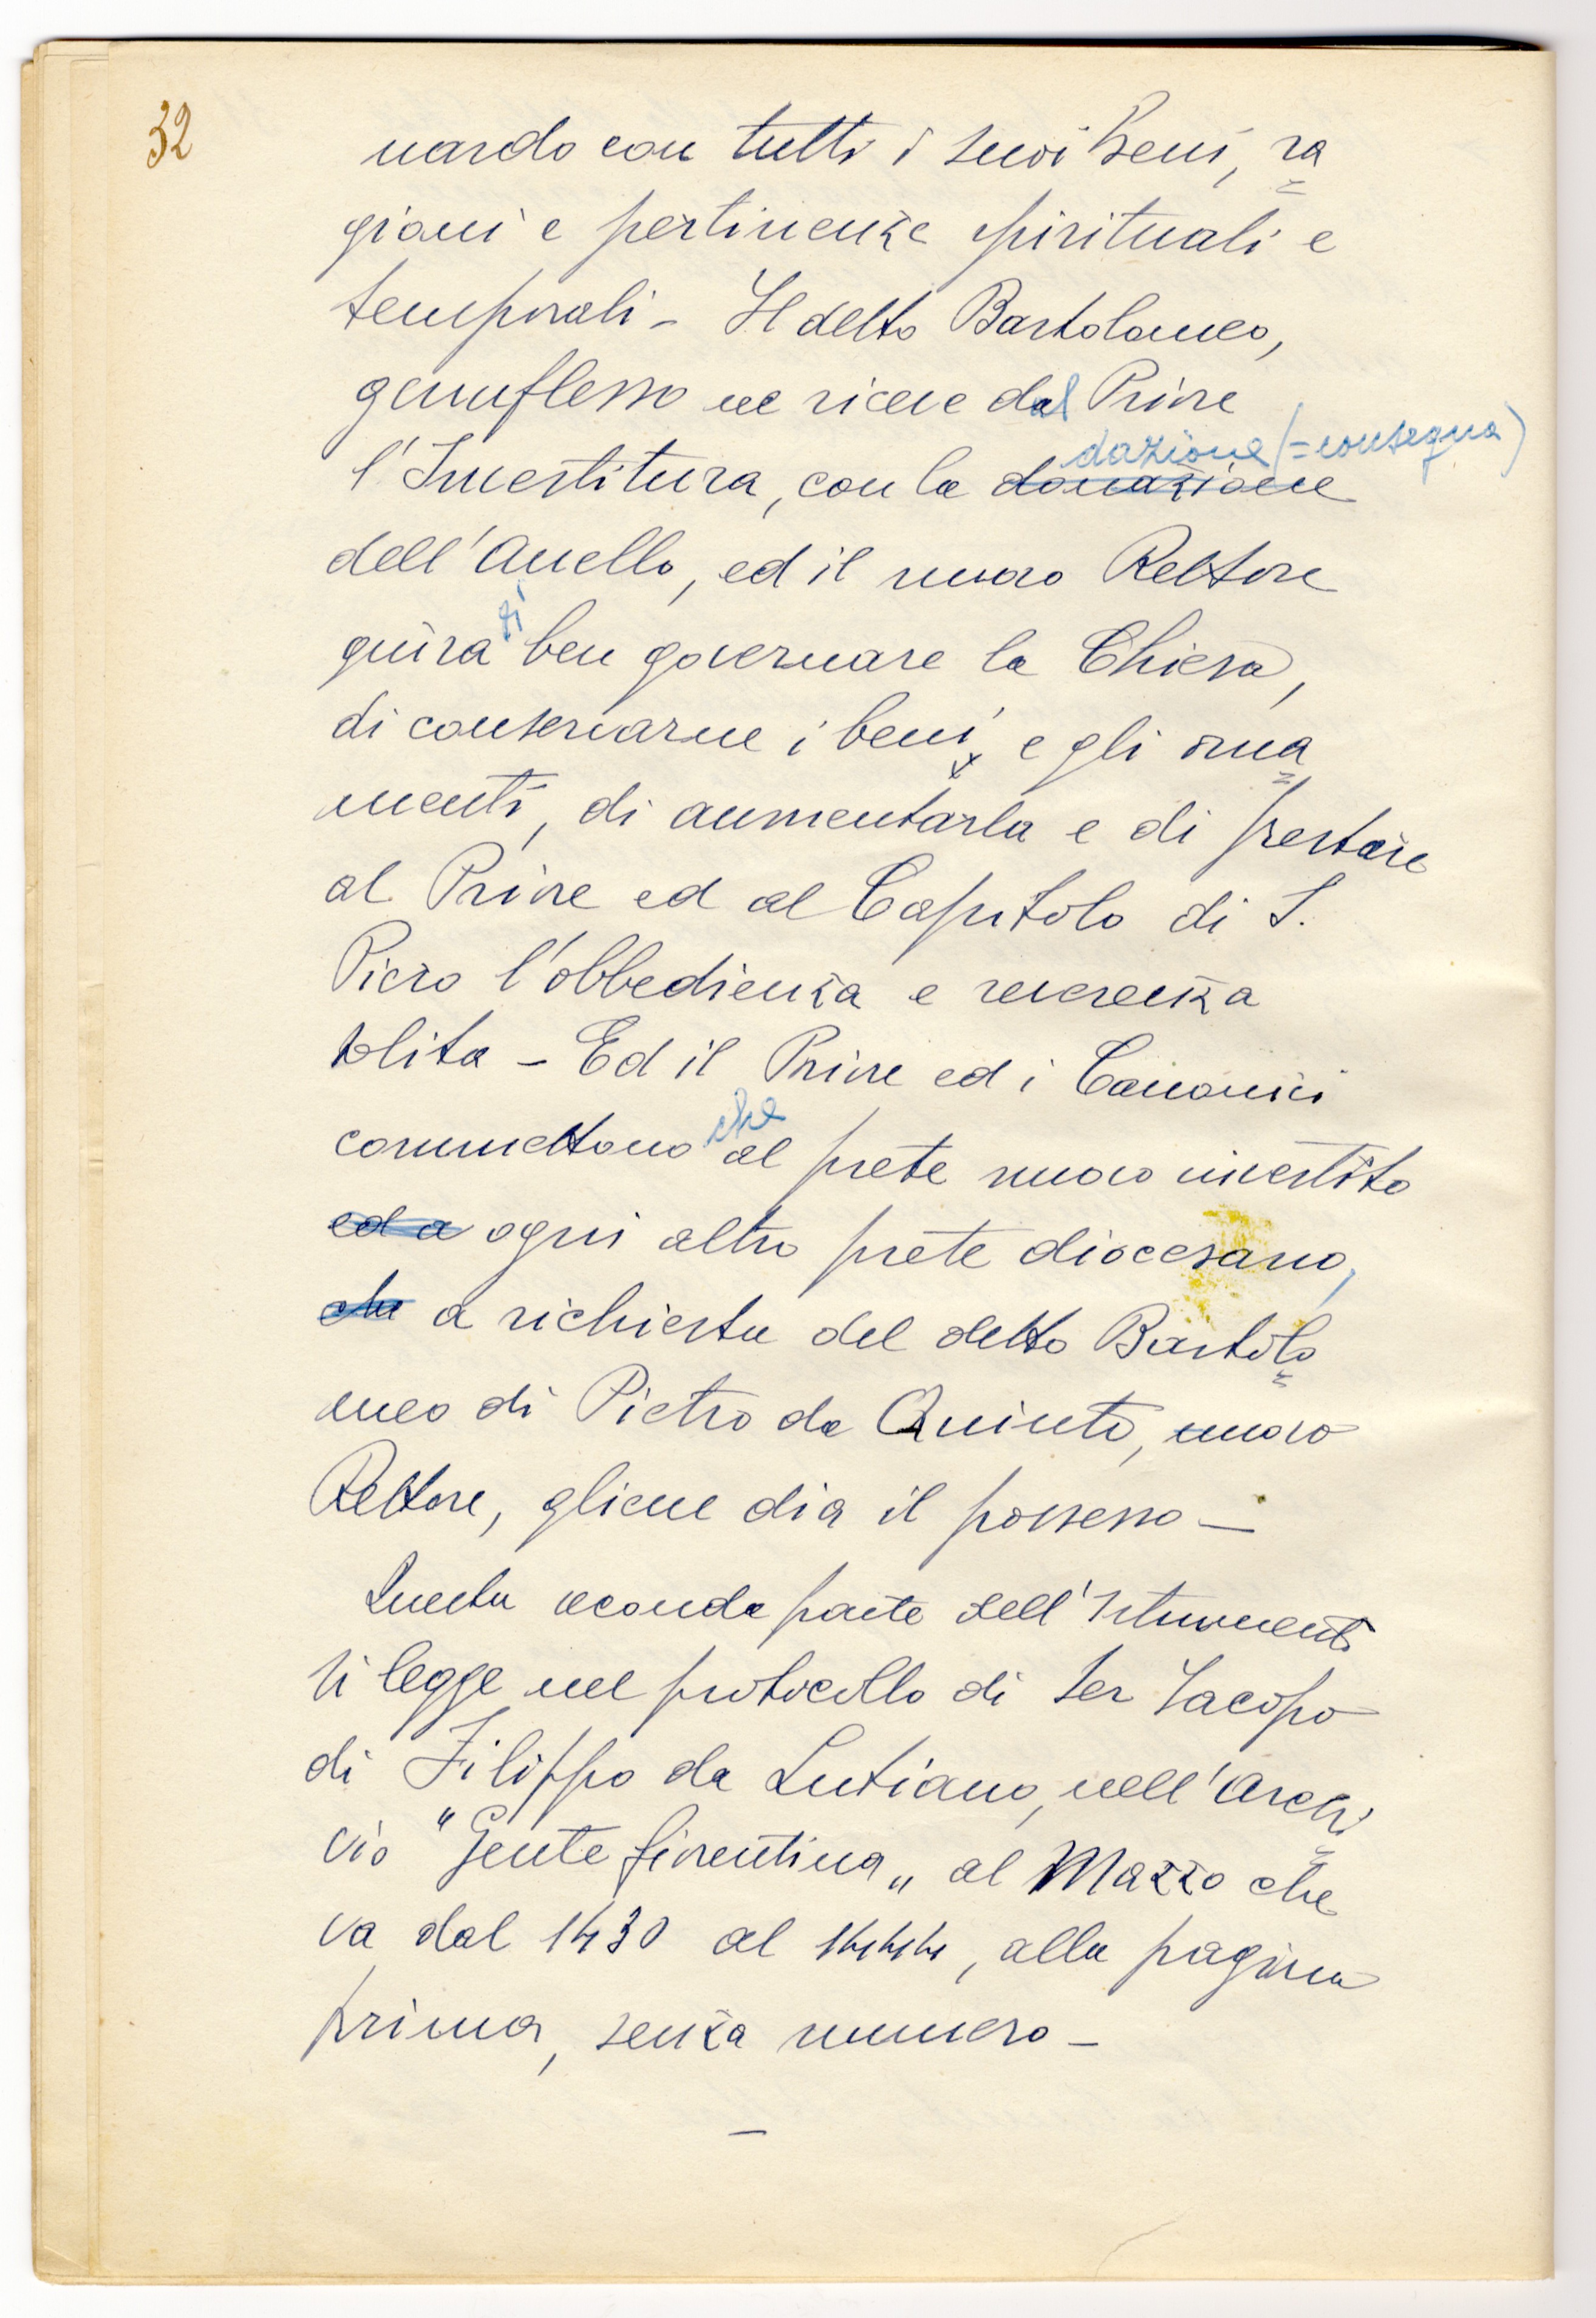 32
nardo con tutti i suoi beni, ra
gioni e pertinenze spirituali e
temporali - Il detto Bartolomeo,
genuflesso ne riceve dal Priore
dazione (=consegna)
l'Investitura, con la donazione
dell'Anello, ed il nuovo Rettore
giura di ben governare la Chiesa,
di conservarne i beni e gli orna
menti, di aumentarla e di prestare
al Priore ed al Capitolo di S.
Piero l'obbedienza e reverenza
solita - Ed il Priore ed i Canonici
commettono che al prete nuovo investito
ed a ogni altro prete diocesano,
che a richiesta del detto Bartolo
meo di Pietro da Quinto, nuovo
Rettore, gliene dia il possesso -
Questa seconda parte dell'Istrumento
si legge nel protocollo di Ser Iacopo
di Filippo da Lutiano, nell'Archi
vio "Gente fiorentina" al Mazzo che
va dal 1430 al 1444, alla pagina
prima, senza numero -
-